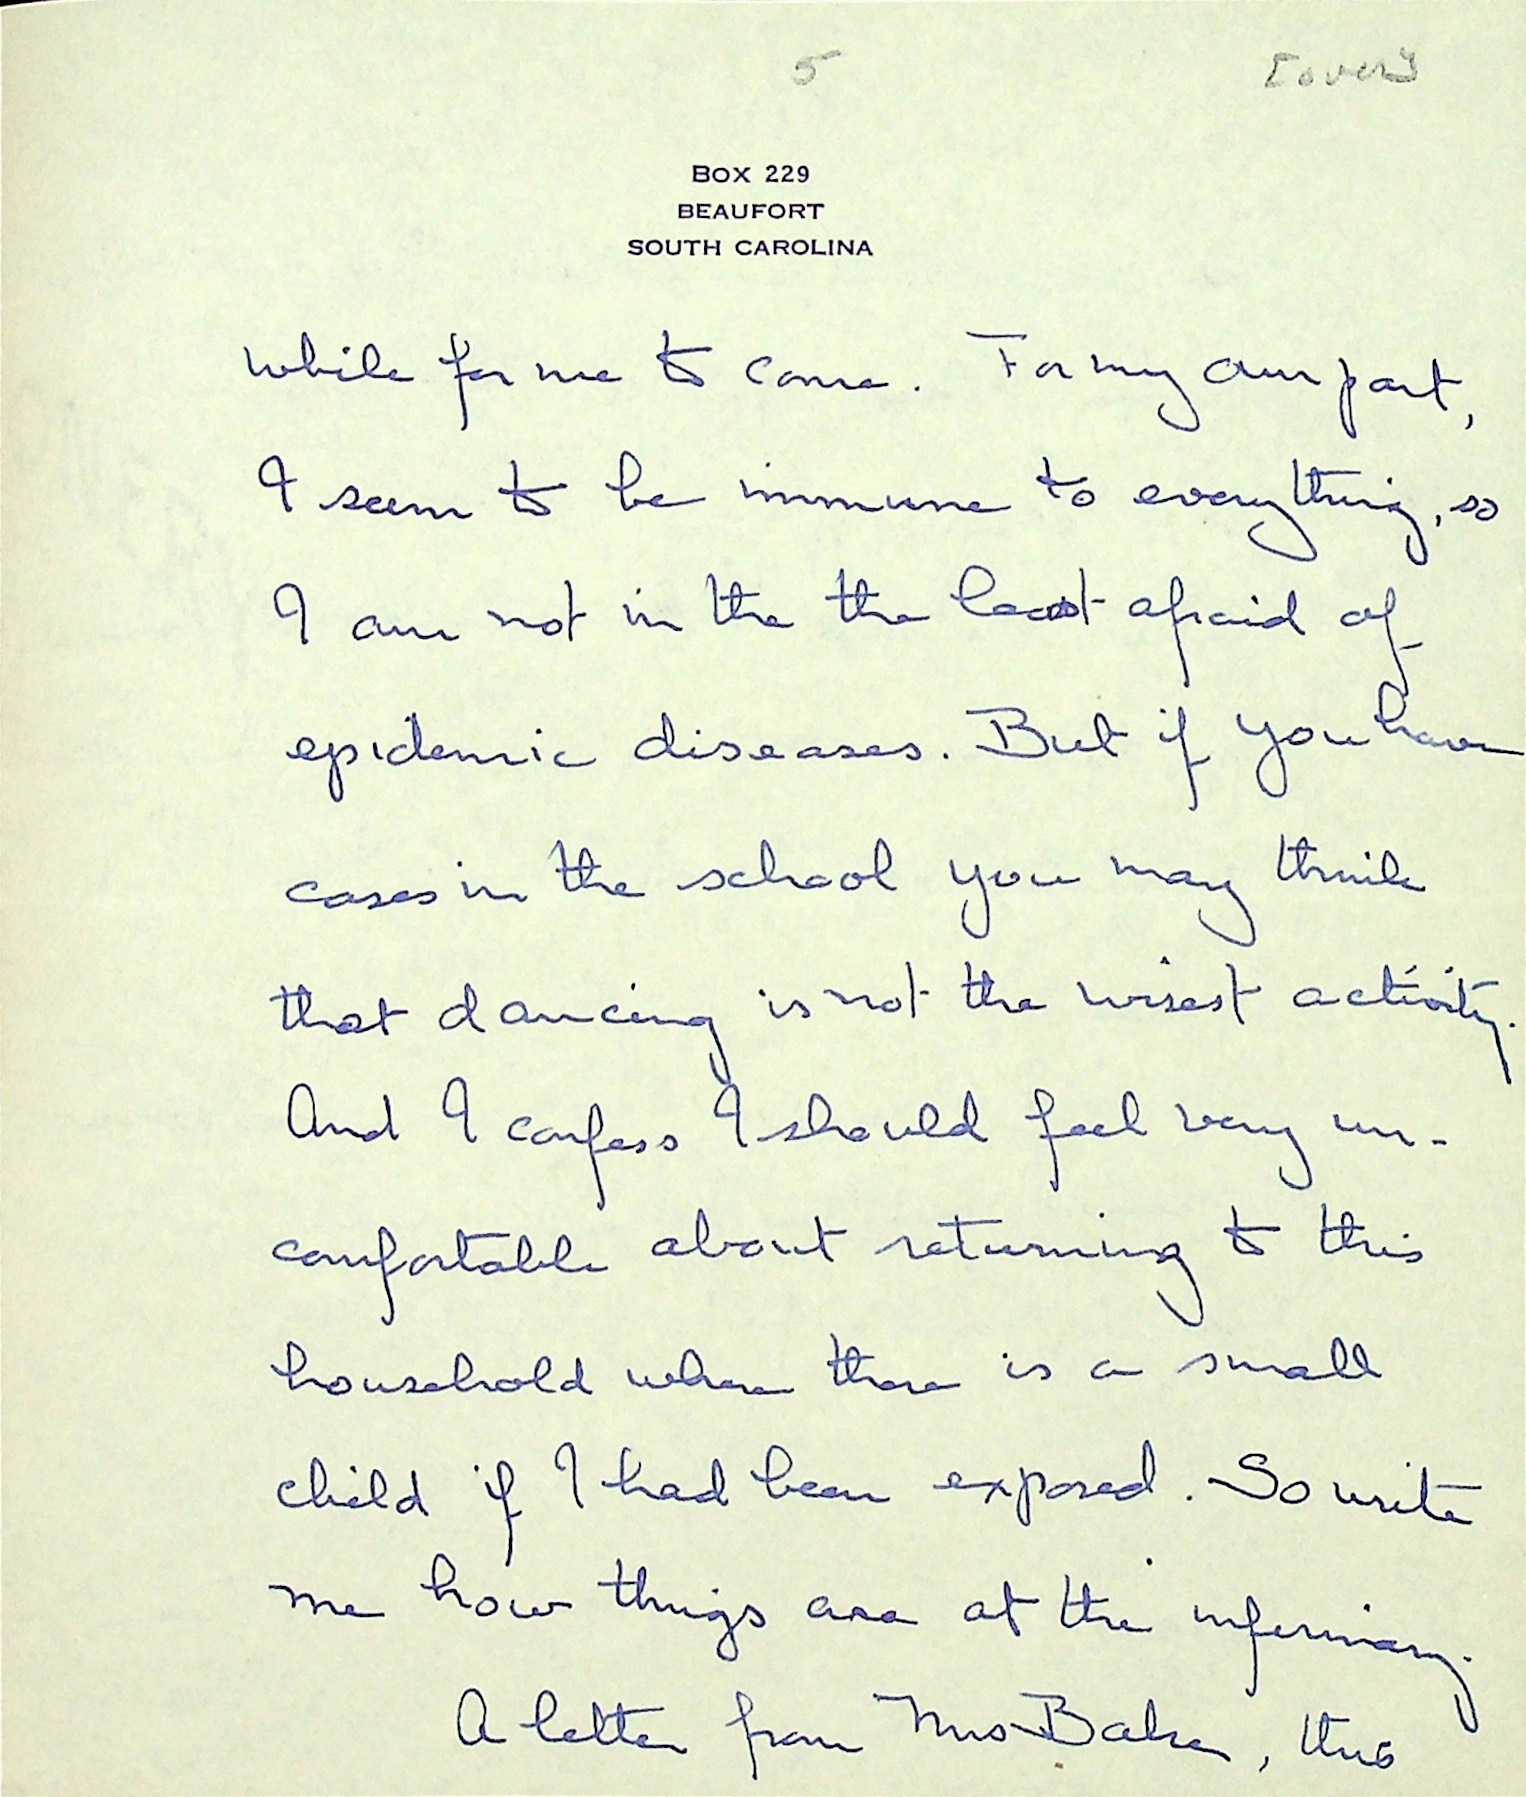 5 [over]
BOX 229
BEAUFORT
SOUTH CAROLINA
while for me to come. For my own part,
I seem to be immune to everything, so
I am not in the the least afraid of
epidemic diseases. But if you have
cases in the school you may think
that dancing is not the wisest activity.
And I confess I should feel very un-
comfortable about returning to this
household where there is a small
child if I had been exposed. So write
me how things are at the infirmary.
A letter from Mrs Baker, this